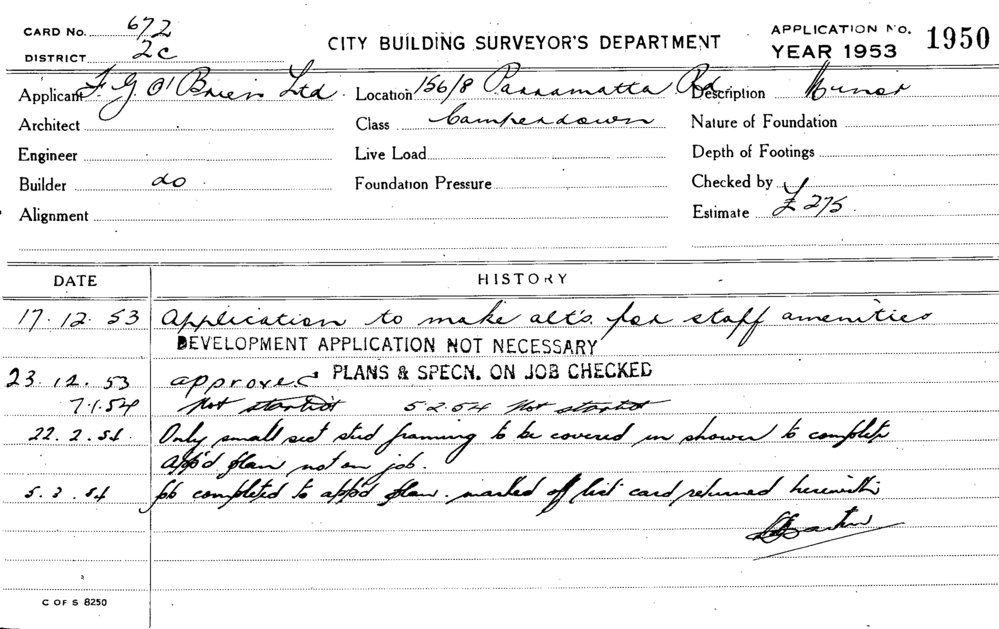 CARD No. 672
DISTRICT 2c
CITY BUILDING SURVEYOR'S DEPARTMENT
APPLICATION No. 1950
YEAR 1953
Applicant F G O'Brien Ltd. Location 156/8 Parramatta Rd Description Minor
Architect Class Camperdown Nature of Foundation
Engineer Live Load Depth of Footings
Builder do Foundation Pressure Checked by
Alignment Estimate £ 275.
DATE HISTORY
17.12.53 Application to make alt's. for staff amenities
DEVELOPMENT APPLICATION NOT NECESSARY
23.12.53 approved PLANS & SPECN. ON JOB CHECKED
7.1.54 Not started 5 2.54 Not started
22.2.54. Only small sect stud framing to be covered in shower to complete
app'd plan not on job.
5.3.54 Job completed to app'd plan. marked off list card returned herewith
C OF S 8250